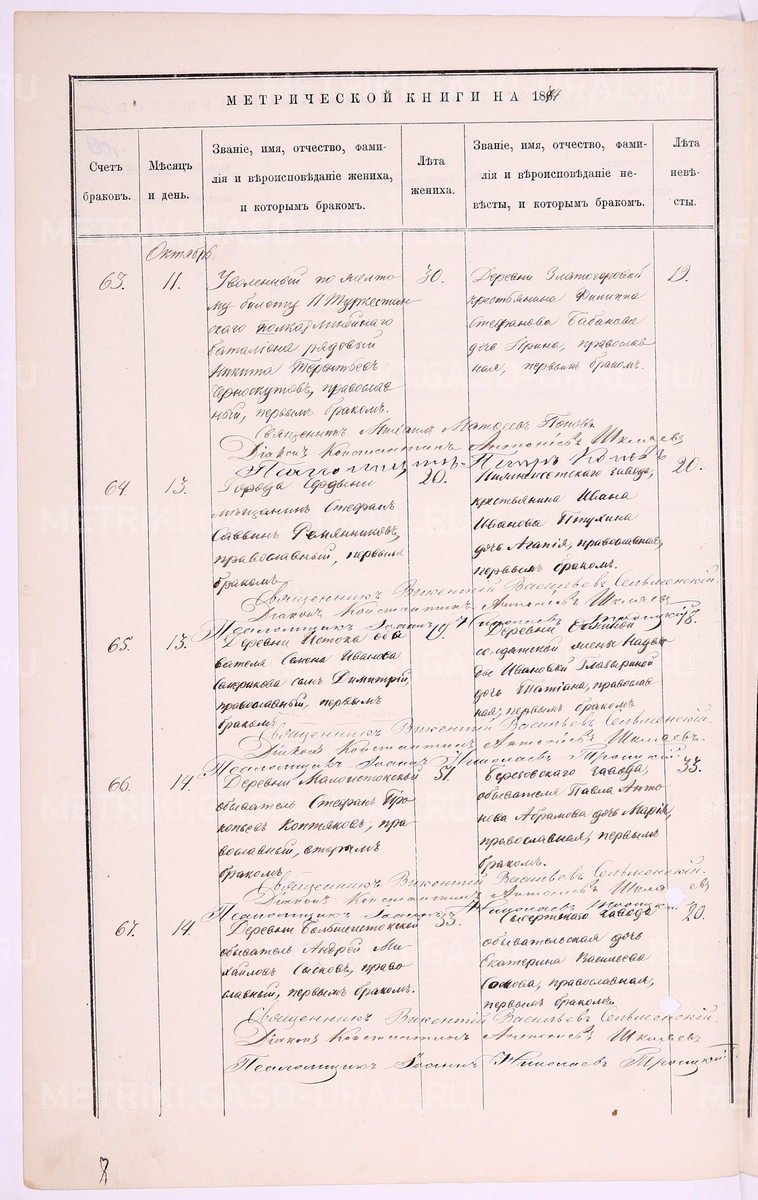 МЕТРИЧЕСКОЙ КНИГИ НА 18
Счетъ браковъ.
Мѣсяцъ и день.
Званіе, имя, отчество, фами-
лія и вѣроисповѣданіе жениха,
и которымъ бракомъ.
Лѣта жениха.
Званіе, имя, отчество, фами-
лія и вѣроисповѣданіе не-
вѣсты, и которымъ бракомъ.
Лѣта невѣ-
сты.
Октябрь.
63.
11.
Уволенный по желто
му билету 11 Туркестан
скаго линейнаго
баталіона рядовый
Никита Терентьевъ
Черноскутовъ, православ
ный, первымъ бракомъ.
30.
Деревни Златогоровой
крестьянина Филиппа
Стефанова Бабанова
дочь Ирина, православ
ная, первымъ бракомъ.
19.
Священникъ Михаилъ Матѳеевъ Поповъ
Діаконъ Константинъ Антоніевъ Шкляевъ
Псаломщикъ Петръ
64.
13.
Города
мѣщанинъ Стефанъ
Саввинъ Ремянниковъ,
православный, первымъ
бракомъ
20.
завода,
крестьянина Ивана
Иванова Пѣтухина
дочь Агапія, православная,
первымъ бракомъ.
20.
Священникъ Викентій Васильевъ Сельменскій.
Діаконъ Константинъ Антоніевъ Шкляевъ
Псаломщикъ Іоаннъ Николаевъ Троицкій
65.
13.
Деревни Истока обы
вателя Семена Иванова
сынъ Димитрій,
православный, первымъ
бракомъ
19.
Деревни
солдатской жены Надеж
ды Ивановой
дочь Татіана, православ
ная, первымъ бракомъ
18.
Священникъ Викентій Васильевъ Сельменскій.
Діаконъ Константинъ Антоніевъ Шкляевъ.
Псаломщикъ Іоаннъ Николаевъ Троицкій
66.
14.
Деревни Малоистокской
обыватель Стефанъ Про
копьевъ Коптяковъ, пра
вославный, вторымъ
бракомъ
51.
Березовскаго завода,
обывателя Павла Анто
нова Абрамова дочь Марія,
православная, первымъ
бракомъ.
33.
Священникъ Викентій Васильевъ Сельменскій.
Діаконъ Константинъ Антоніевъ Шкляевъ
Псаломщикъ Іоаннъ Николаевъ Троицкій
67.
14.
Деревни Большеистокской
обыватель Андрей Ми
хайловъ Сысковъ, право
славный, первымъ бракомъ.
33.
Сысертскаго завода
обывательская дочь
Екатерина Васильева
православная,
первымъ бракомъ.
20.
Священникъ Викентій Васильевъ Сельменскій.
Діаконъ Константинъ Антоніевъ Шкляевъ
Псаломщикъ Іоаннъ Николаевъ Троицкій
METRIKI.GASO-URAL.RU